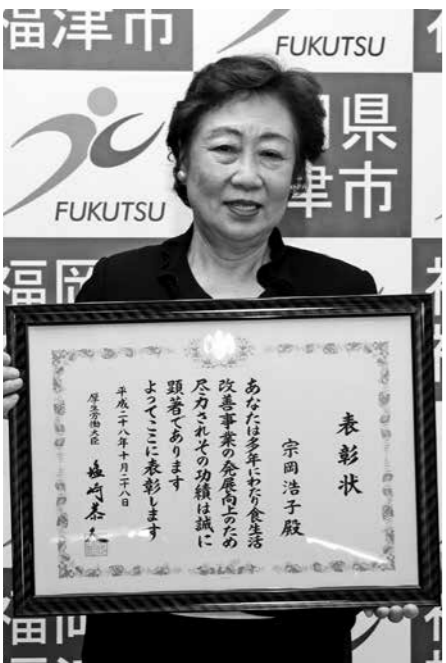 福津市
FUKUTSU
岡県
津市
FUKUTSU
福岡
表彰状
宗岡浩子殿
あなたは多年にわたり食生活
改善事業の発展向上のため
尽力されその功績は誠に
顕著であります
よってここに表彰します
平成二十八年十月二十八日
厚生労働大臣 塩崎恭久